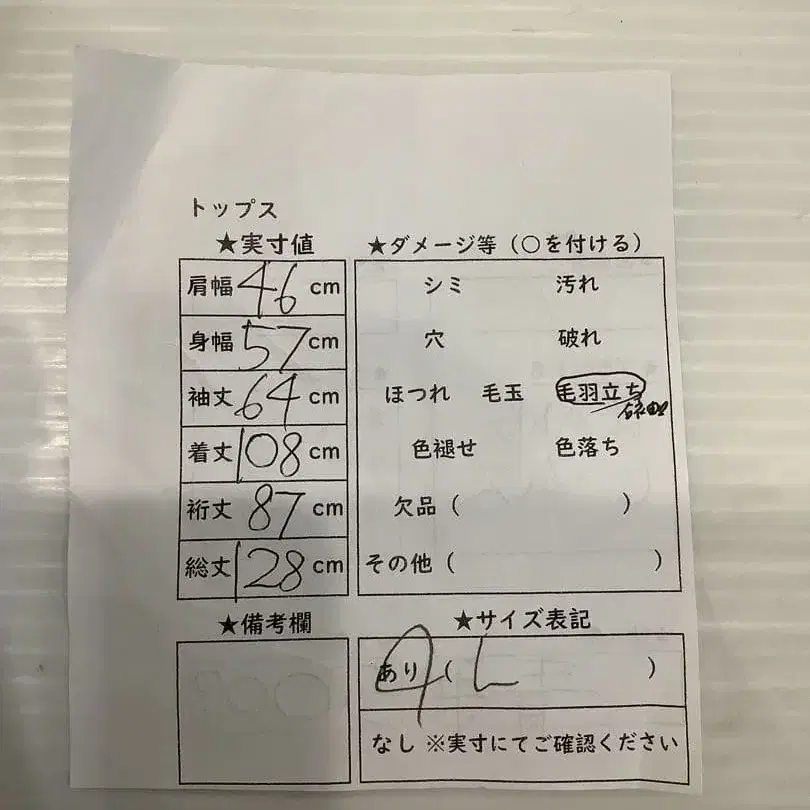 トップス
★実寸値
肩幅 46 cm
身幅 57 cm
袖丈 64 cm
着丈 108 cm
裄丈 87 cm
総丈 128 cm
★備考欄
★ダメージ等（○を付ける）
シミ 汚れ
穴 破れ
ほつれ 毛玉 毛羽立ち
色褪せ 色落ち
欠品（ ）
その他（ ）
★サイズ表記
あり（ L ）
なし ※実寸にてご確認ください